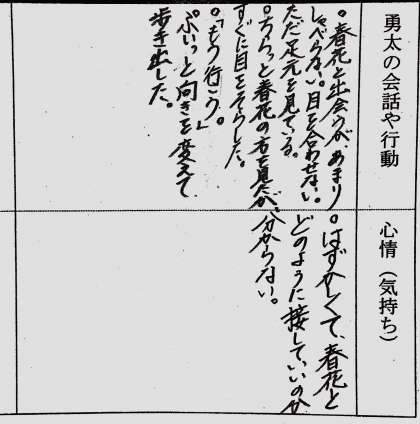 勇太の会話や行動
。春花と出会うが、あまり
しゃべらない。目を合わせない。
ただ足元を見ている。
。ちらっと春花の方を見たが、
すぐに目をそらした。
。「もう行こう。」
。ぷいっと向きを変えて
歩き出した。
心情（気持ち）
。はずかしくて、春花と
どのように接していいのか
分からない。